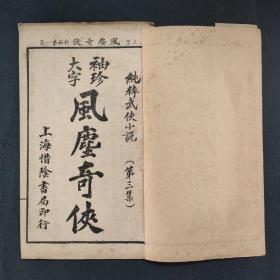 純粹武俠小說
(第三集)
袖珍
大字
風塵奇俠
上海惜陰書局印行